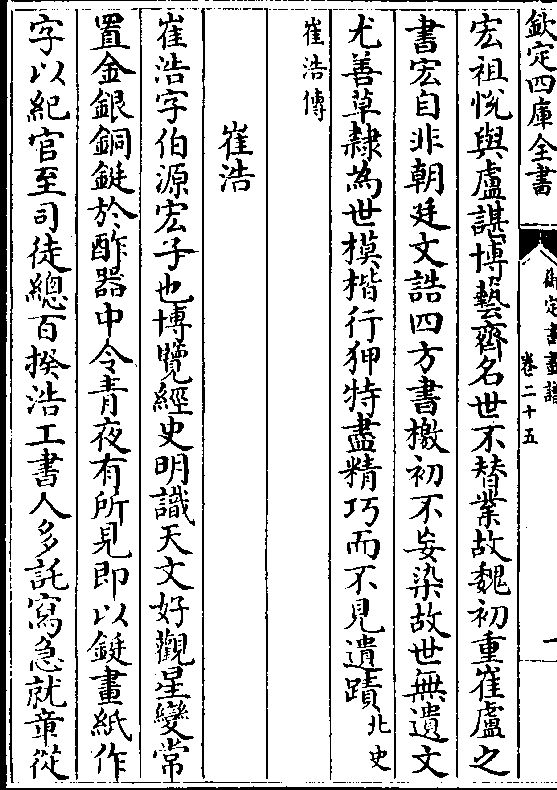 欽定四庫全書
御定書畫譜
卷二十五
宏祖悅與盧諶博藝齊名世不替業故魏初重崔盧之
書宏自非朝廷文誥四方書檄初不妄染故世無遺文
尤善草隸為世模楷行狎特盡精巧而不見遺蹟北史
崔浩傳
崔浩
崔浩字伯源宏子也博覽經史明識天文好觀星變常
置金銀銅鋌於酢器中令青夜有所見即以鋌畫紙作
字以紀官至司徒總百揆浩工書人多託寫急就章從